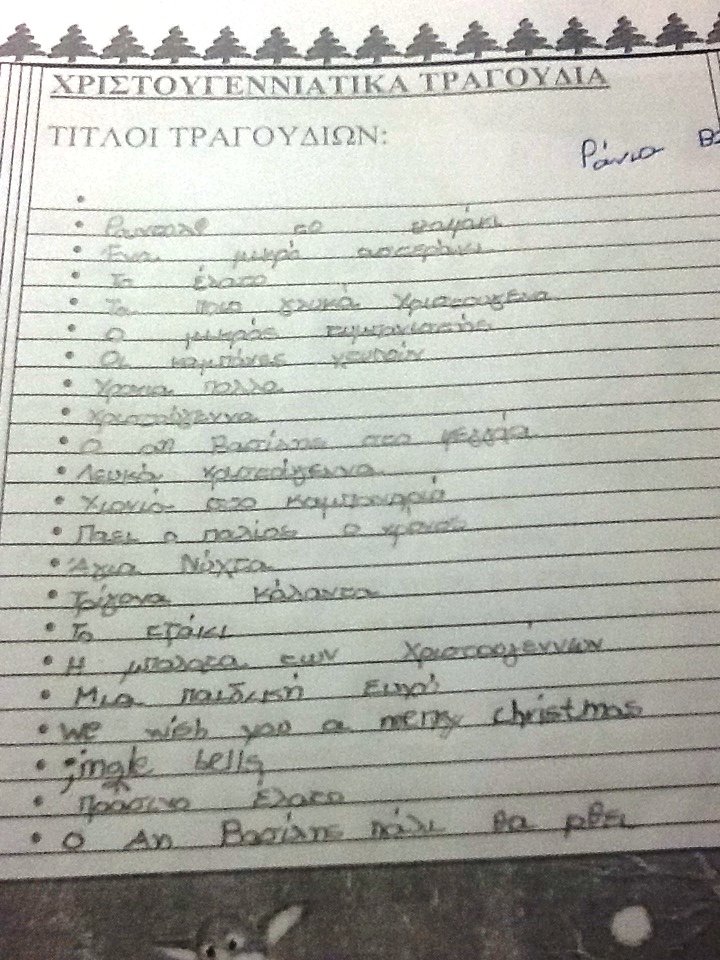 ΧΡΙΣΤΟΥΓΕΝΝΙΑΤΙΚΑ ΤΡΑΓΟΥΔΙΑ
ΤΙΤΛΟΙ ΤΡΑΓΟΥΔΙΩΝ:
Ράνια Β2
το ελαφάκι
Ένα μικρό αστεράκι
Το έλατο
Τα πιο γλυκά Χριστουγενα
Ο μικρός τυμπανιστής
Οι καμπάνες χτυπούν
Χρονια πολλα
Χριστούγεννα
Ο αη Βασίλης στο
Λευκά χριστούγεννα
Χιονιά στο καμπαναριό
Παει ο παλιος ο χρονος
Άγια Νύχτα
Τρίγονα κάλαντα
Το
Η μπαλατα των Χριστουγέννων
Μια παιδική Ευχή
we wish you a merry christmas
jingle bells
Πράσινο έλατο
Ο Αη Βασίλης πάλι θα ρθει